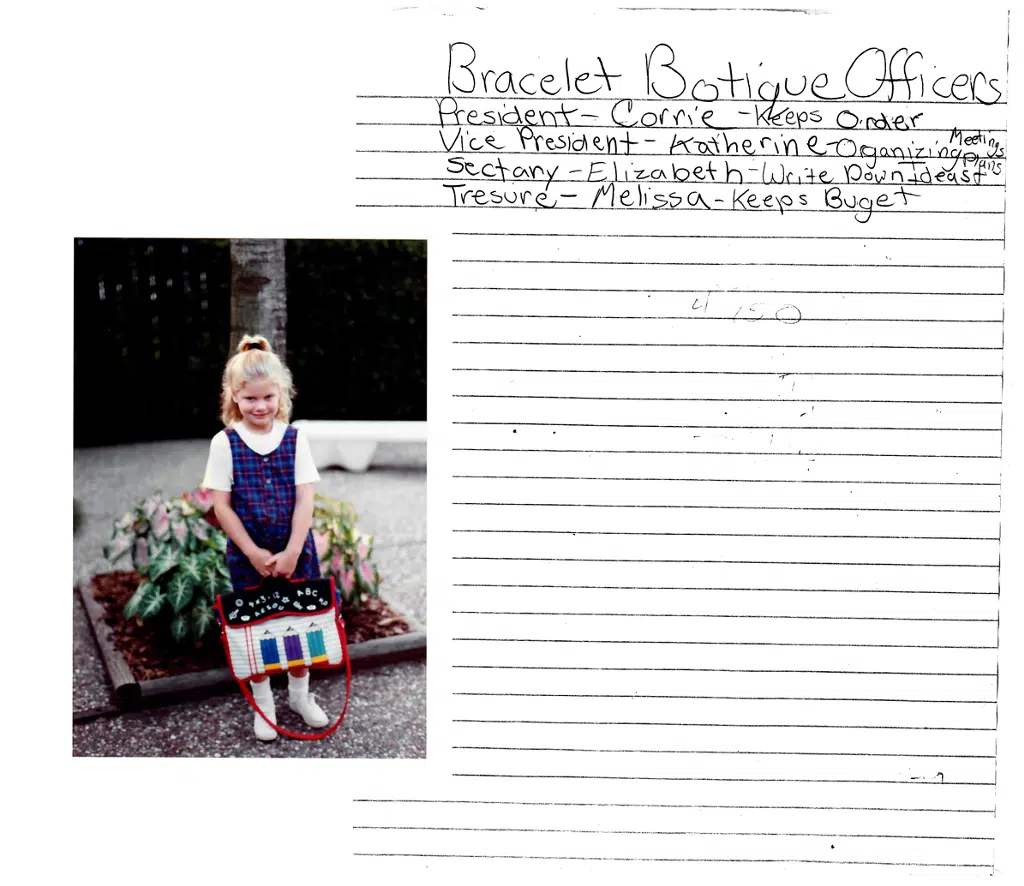 Bracelet Botique Officers
President - Corrie - Keeps Order
Vice President - Katherine - Oganizing Meetings plans
Sectary - Elizabeth - Write Down Ideast
Tresure - Melissa - Keeps Buget
4 150
4x3=12 ABC